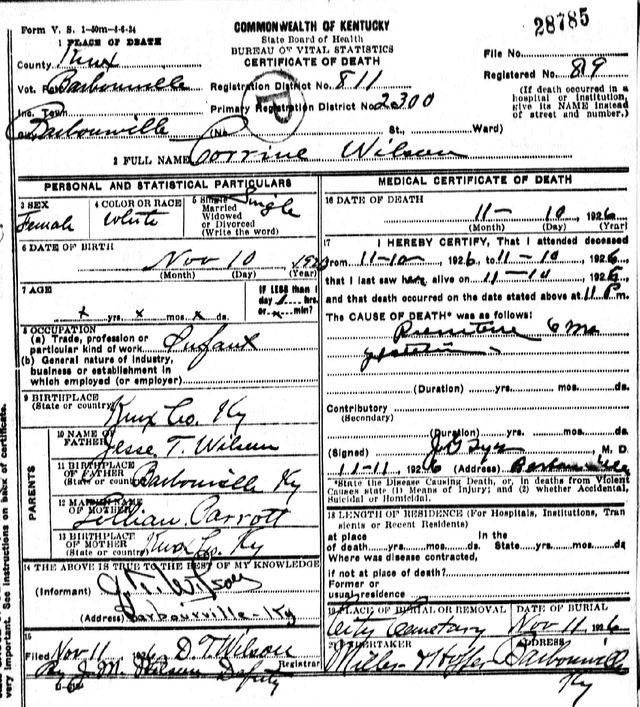 Form V. S. 1—50m—4-6-24
COMMONWEALTH OF KENTUCKY
28785
1 PLACE OF DEATH
State Board of Health
BUREAU OF VITAL STATISTICS
CERTIFICATE OF DEATH
File No.
County Knox
Vot. Barbourville
Registration District No. 811
Registered No. 89
Inc. Town
Primary Registration District No. 2300
(If death occurred in a hospital or institution, give its NAME instead of street and number.)
Barbourville (No. St., Ward)
P
2 FULL NAME Corrine Wilson
PERSONAL AND STATISTICAL PARTICULARS
3 SEX
Female
4 COLOR OR RACE
White
5 Single
Married
Widowed
or Divorced
(Write the word)
Single
6 DATE OF BIRTH
Nov 10, 1926
(Month) (Day) (Year)
7 AGE
x yrs. x mos. x ds.
IF LESS than 1
day hrs.
or min?
8 OCCUPATION
(a) Trade, profession or
particular kind of work Infant
(b) General nature of industry,
business or establishment in
which employed (or employer)
9 BIRTHPLACE
(State or country) Knox Co. Ky
PARENTS
10 NAME OF
FATHER Jesse T. Wilson
11 BIRTHPLACE
OF FATHER
(State or country) Barbourville Ky
12 MAIDEN NAME
OF MOTHER Lillian Parrott
13 BIRTHPLACE
OF MOTHER
(State or country) Knox Co. Ky
14 THE ABOVE IS TRUE TO THE BEST OF MY KNOWLEDGE
(Informant) J. T. Wilson
(Address) Barbourville-Ky
15
Filed Nov 11, 1926 D. T. Wilson
Registrar
By J. M. Wilson Deputy
MEDICAL CERTIFICATE OF DEATH
16 DATE OF DEATH
11- 10, 1926
(Month) (Day) (Year)
17 I HEREBY CERTIFY, That I attended deceased
from 11-10, 1926, to 11-10, 1926,
that I last saw h alive on 11-10, 1926,
and that death occurred on the date stated above at 11 P m.
The CAUSE OF DEATH* was as follows:
6 Mo
(Duration) yrs. mos. ds.
Contributory
(Secondary)
(Duration) yrs. mos. ds.
(Signed) M. D.
11-11, 1926 (Address) Barbourville
*State the Disease Causing Death, or, in deaths from Violent
Causes state (1) Means of Injury; and (2) whether Accidental,
Suicidal or Homicidal.
18 LENGTH OF RESIDENCE (For Hospitals, Institutions, Tran
sients or Recent Residents)
at place In the
of death yrs. mos. ds. State yrs. mos. ds.
Where was disease contracted,
if not at place of death?
Former or
usual residence
19 PLACE OF BURIAL OR REMOVAL
City Cemetary
DATE OF BURIAL
Nov 11, 1926
20 UNDERTAKER
Miller &
ADDRESS
Barbourville
Ky
very important. See instructions on back of certificate.